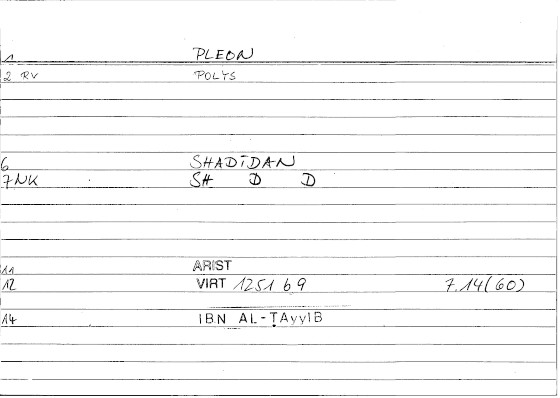 1 PLEON
2 RV POLYS
6 SHADĪDAN
7NK SH D D
11 ARIST
12 VIRT 1251 b 9 7.14(60)
14 IBN AL-ṬAyyIB